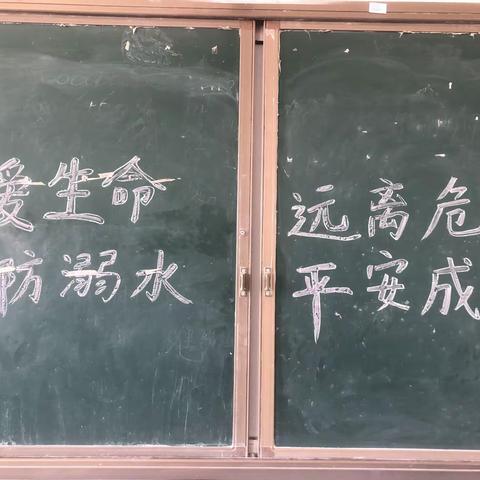 爱生命
防溺水
远离危
平安成